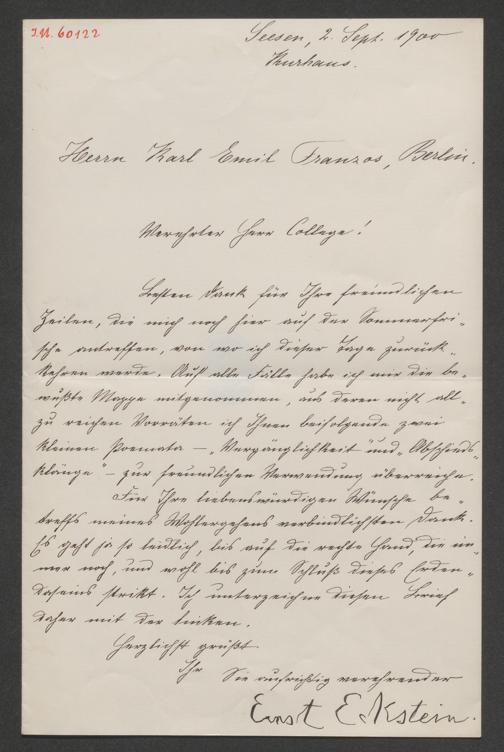 I.N. 60122
Seesen, 2. Sept. 1900
Kurhaus.
Herrn Karl Emil Franzos, Berlin.
Verehrter Herr College!
Besten Dank für Ihre freundlichen
Zeilen, die mich noch hier auf der Sommerfri-
sche antreffen, von wo ich dieser Tage zurück-
kehren werde. Auf alle Fälle habe ich mir die be-
wußte Mappe mitgenommen, aus deren nicht all-
zu reichen Vorräten ich Ihnen beifolgende zwei
kleinen Poemata – „Vergänglichkeit" und „Abschieds-
klänge" – zur freundlichen Verwendung überreiche.
Für Ihre liebenswürdigen Wünsche be-
treffs meines Wohlergehens verbindlichsten Dank.
Es geht ja so leidlich, bis auf die rechte Hand, die im-
mer noch und wohl bis zum Schluß dieses Erden-
daseins strikt. Ich unterzeichne diesen Brief
daher mit der linken.
Herzlichst grüßt
Ihr Sie aufrichtig verehrender
Ernst Eckstein.